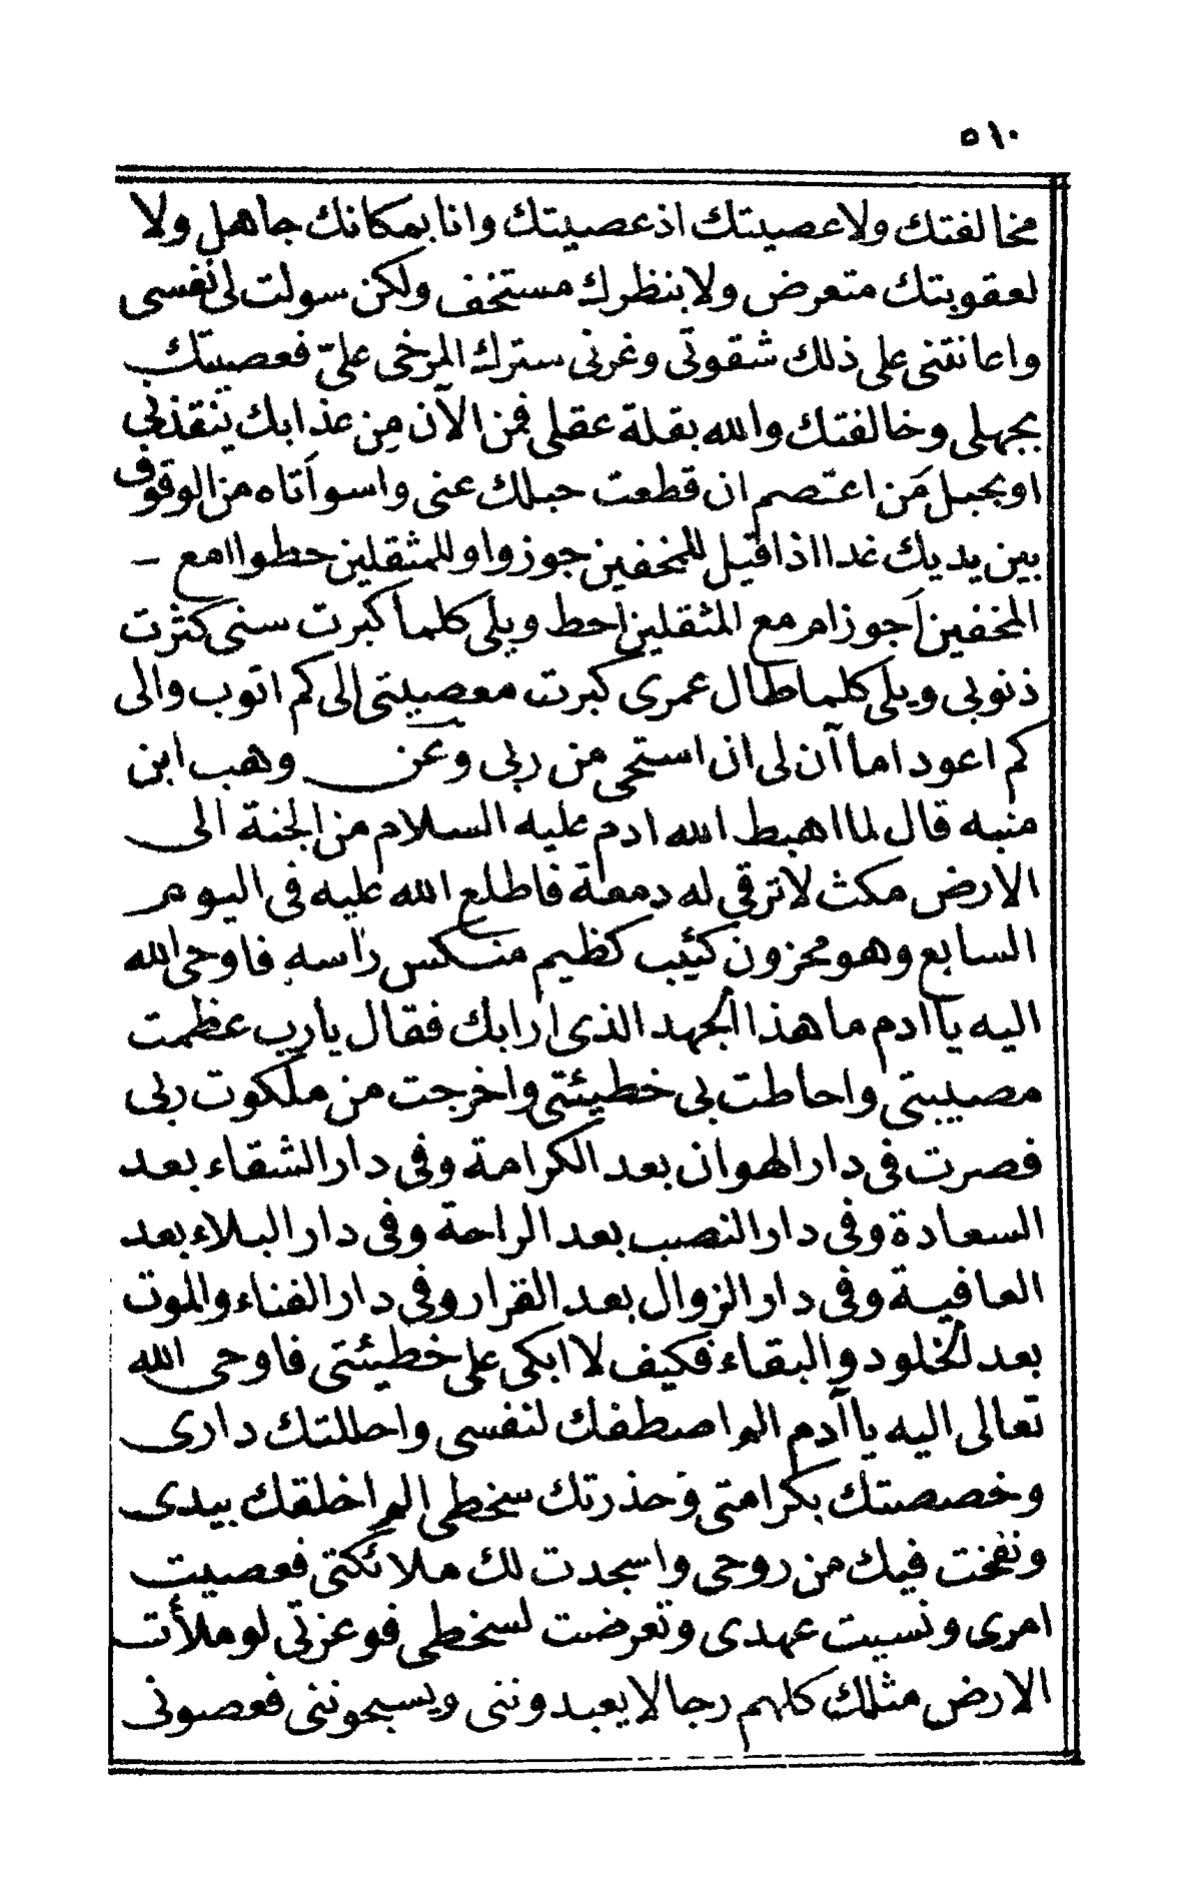 ٥١٠
مخالفتك ولا عصيتك اذ عصيتك وانا بمكانك جاهل ولا
لعقوبتك متعرض ولا بنظرك مستخف ولكن سولت لى نفسى
واعانتنى على ذلك شقوتى وغرنى سترك المرخى علىّ فعصيتك
بجهلى وخالفتك والله بقلة عقلى فمن الآن مِن عذابك ينقذنى
او بجبل مَن اعتصم ان قطعت حبلك عنى واسوأتاه من الوقوف
بين يديك غدا اذا قيل للمخفين جوزوا وللمثقلين حطوا امع -
المخفين اَجوز ام مع المثقلين احط ويلى كلما كبرت سنى كثرت
ذنوبى ويلى كلما طال عمرى كبرت معصيتى الى كم اتوب والى
كم اعود اما آن لى ان استحى من ربى وعن وهب ابن
منبه قال لما اهبط الله ادم عليه السلام من الجنة الى
الارض مكث لا ترقى له دمعة فاطلع الله عليه فى اليوم
السابع وهو محزون كئيب كظيم منكس راسه فاوحى الله
اليه يا ادم ما هذا الجهد الذى ارا بك فقال يارب عظمت
مصيبتى واحاطت بى خطيئتى واخرجت من ملكوت ربى
فصرت فى دار الهوان بعد الكرامة وفى دار الشقاء بعد
السعادة وفى دار النصب بعد الراحة وفى دار البلاء بعد
العافية وفى دار الزوال بعد القرار وفى دار الفناء والموت
بعد الخلود والبقاء فكيف لا ابكى على خطيئتى فاوحى الله
تعالى اليه يا آدم الم اصطفك لنفسى واحللتك دارى
وخصصتك بكرامتى وحذرتك سخطى الم اخلقك بيدى
ونفخت فيك من روحى واسجدت لك ملائكتى فعصيت
امرى ونسيت عهدى وتعرضت لسخطى فوعزتى لو ملأت
الارض مثلك كلهم رجالا يعبدوننى ويسبحوننى فعصونى